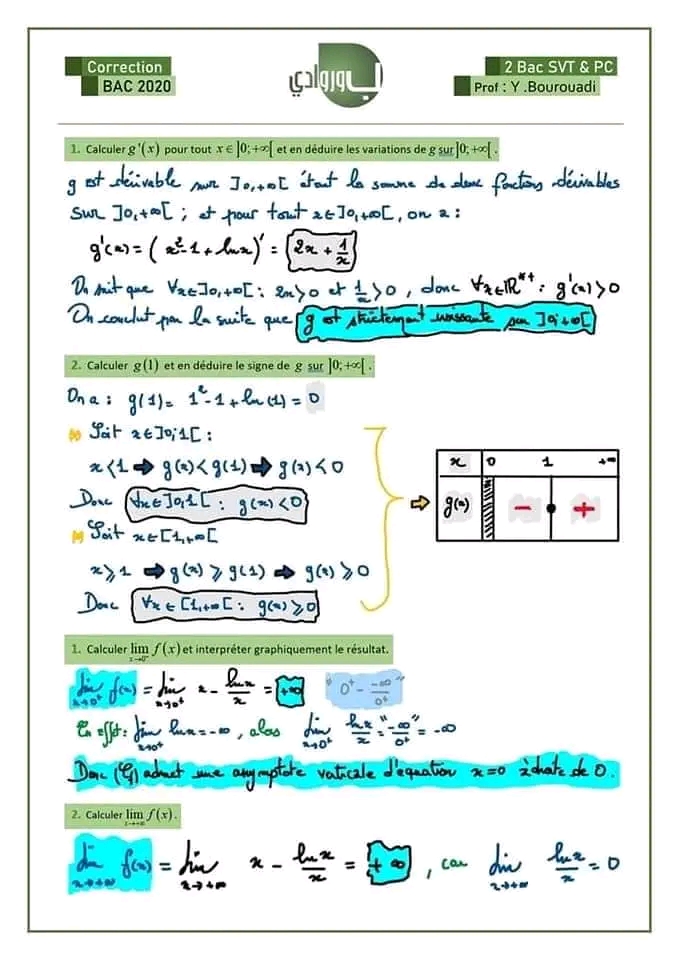 Correction
BAC 2020
بوروادي
2 Bac SVT & PC
Prof : Y .Bourouadi
1. Calculer g'(x) pour tout x ∈ ]0;+∞[ et en déduire les variations de g sur ]0;+∞[ .
g est dérivable sur ]0,+∞[ étant la somme de deux fonctions dérivables
sur ]0,+∞[ ; et pour tout x∈]0,+∞[, on a :
g'(x) = ( x²-1 + ln x )' = 2x + 1/x
On sait que ∀x∈]0,+∞[ : 2x>0 et 1/x >0 , donc ∀x∈ℝ*⁺ : g'(x)>0
On conclut par la suite que g est strictement croissante sur ]0,+∞[
2. Calculer g(1) et en déduire le signe de g sur ]0;+∞[ .
On a : g(1) = 1²-1+ln(1) = 0
Soit x∈]0;1[ :
x<1 ⇒ g(x)<g(1) ⇒ g(x)<0
Donc ∀x∈]0,1[ : g(x)<0
Soit x∈[1,+∞[
x⩾1 ⇒ g(x)⩾g(1) ⇒ g(x)⩾0
Donc ∀x∈[1,+∞[ : g(x)⩾0
x 0 1 +∞
g(x) − +
1. Calculer lim x→0⁺ f(x) et interpréter graphiquement le résultat.
lim x→0⁺ f(x) = lim x→0⁺ x - ln x/x = +∞ " 0⁺ - -∞/0⁺ "
En effet : lim x→0⁺ ln x = -∞ , alors lim x→0⁺ ln x/x = "-∞/0⁺" = -∞
Donc (Cf) admet une asymptote verticale d'equation x=0 à droite de 0.
2. Calculer lim x→+∞ f(x).
lim x→+∞ f(x) = lim x→+∞ x - ln x/x = +∞ , car lim x→+∞ ln x/x = 0